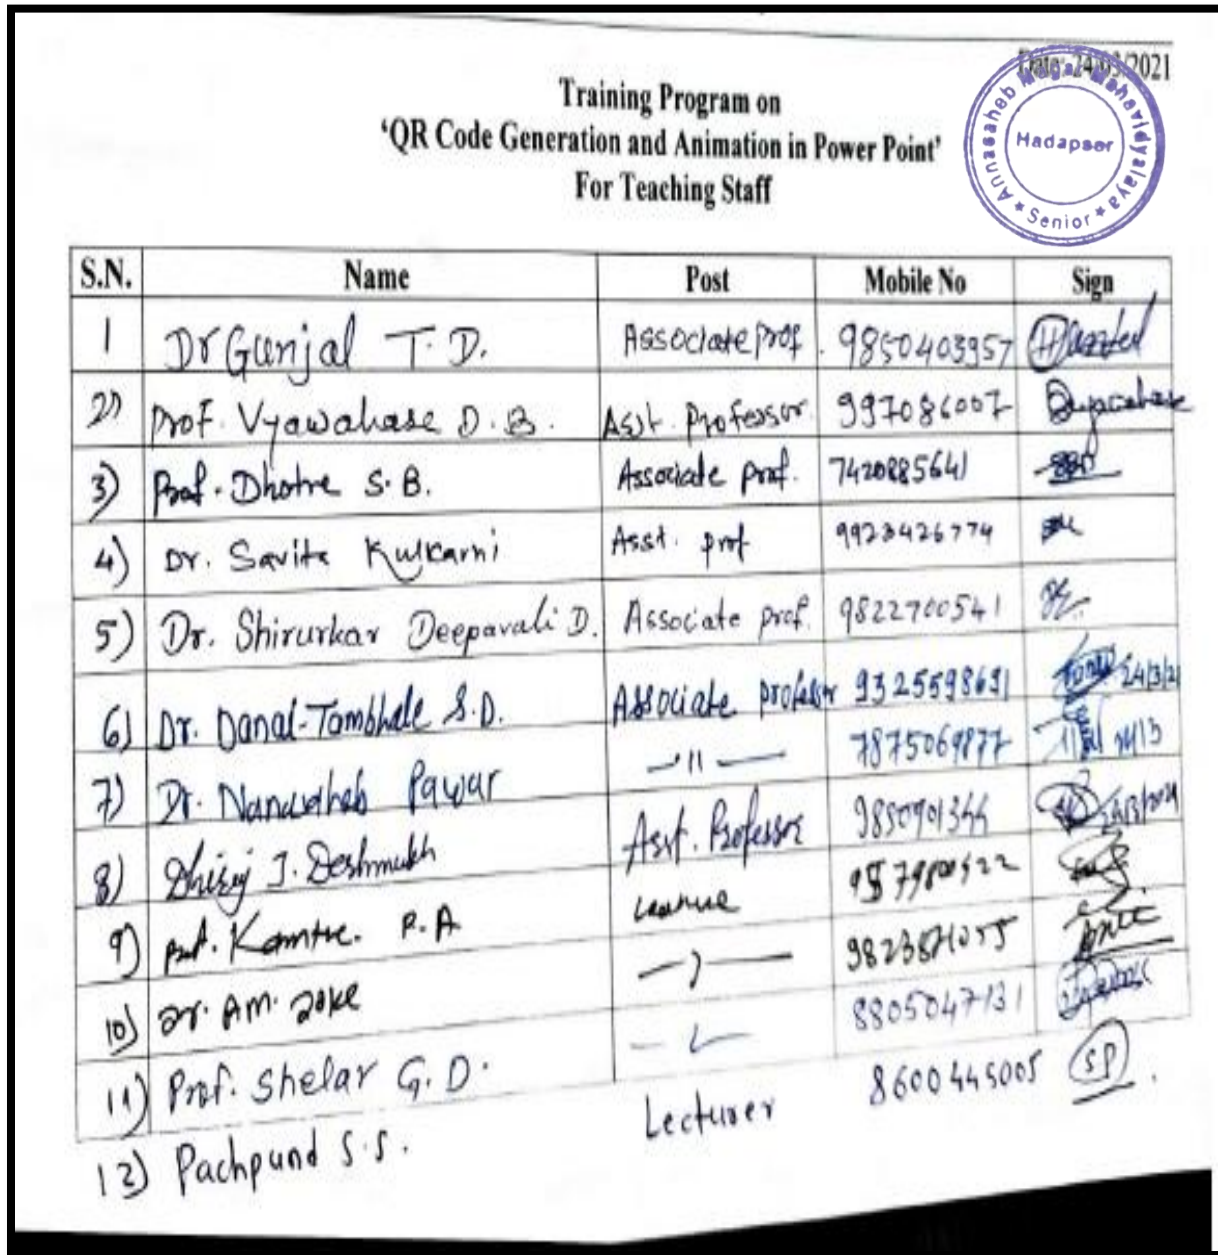 Date: 24/03/2021
Annasaheb Magar Mahavidyalaya
Hadapsar
★ Senior ★
Training Program on
‘QR Code Generation and Animation in Power Point’
For Teaching Staff
S.N. Name Post Mobile No Sign
1 Dr Gunjal T. D. Associate prof. 9850403957
2) Prof. Vyawahase D. B. Asst. Professor 997086007
3) Prof. Dhotre S. B. Associate prof. 7420885641
4) Dr. Savita Kulkarni Asst. prof 9923426774
5) Dr. Shirurkar Deepavali D. Associate prof. 9822700541
6) Dr. Danal-Tambhale S.D. Associate professor 9325598631 24/3/21
7) Dr. Nanasaheb Pawar —11— 7875069877
8) Dhiraj J. Deshmukh Asst. Professor 9850901344 24/3/2021
9) Prof. Kamthe. R. A
10) Dr. A.M. Joke
11) Prof. Shelar G. D. 8805047131
12) Pachpund S.S. Lecturer 8600445005 SP